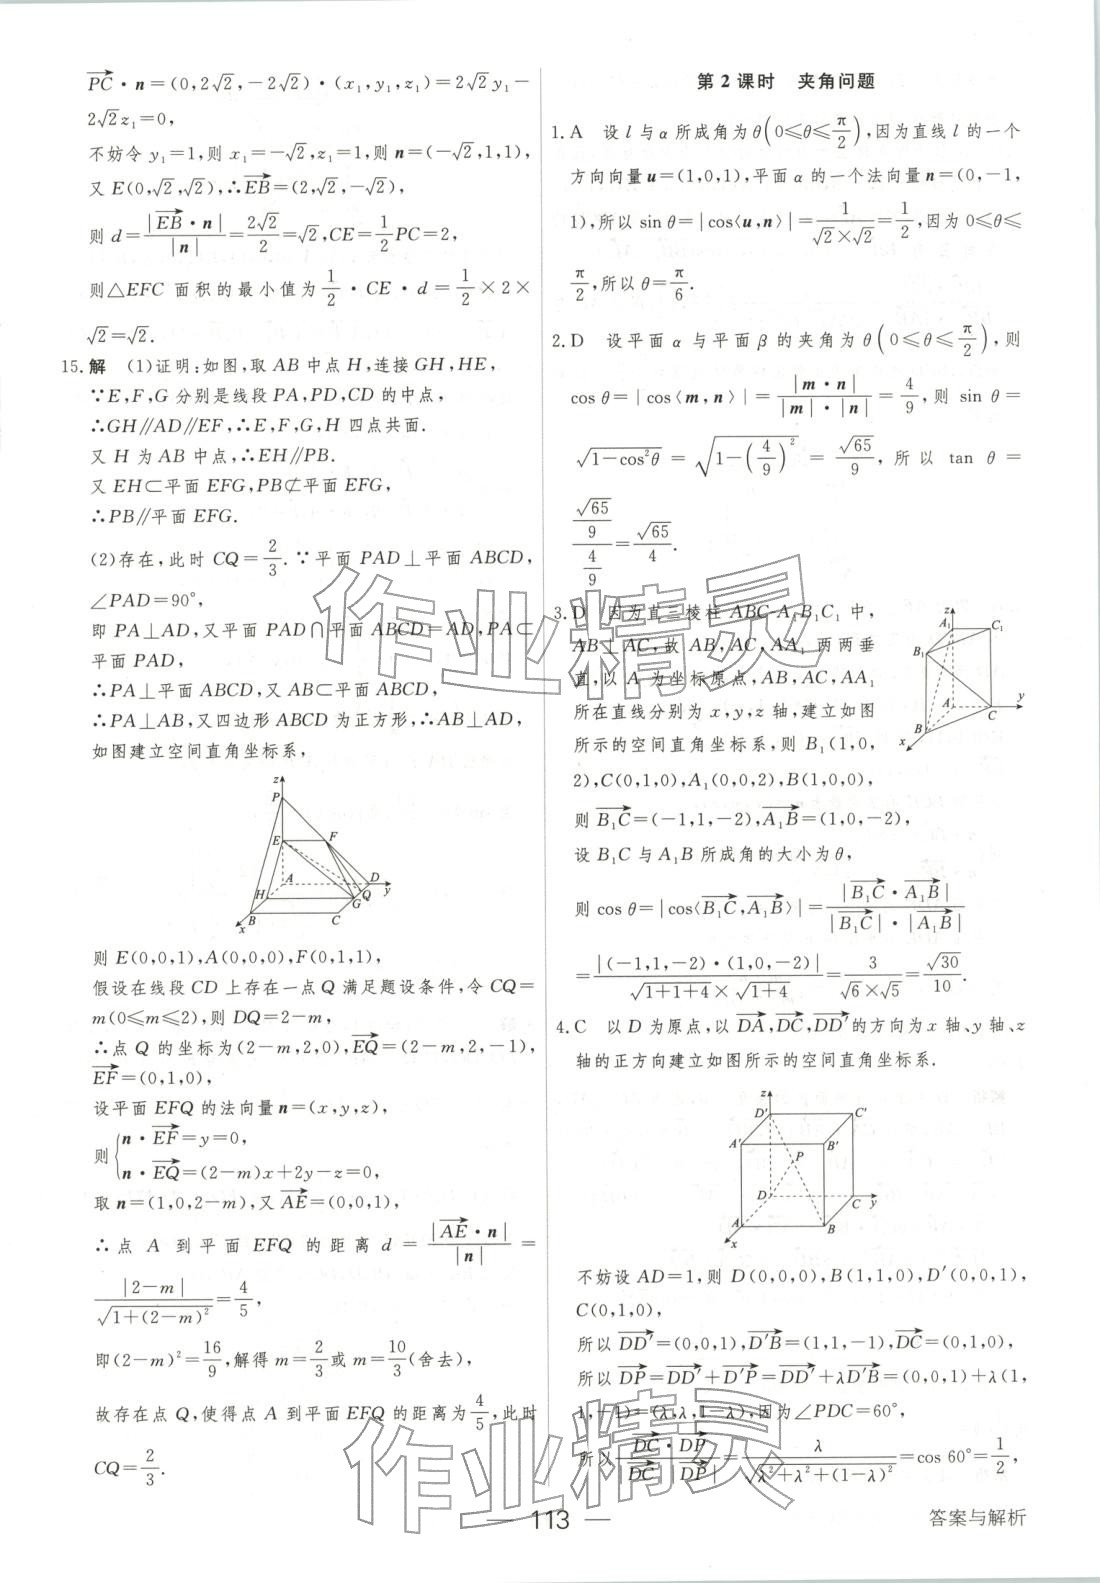 $\overrightarrow{PC}$·n=(0,2√2,-2√2)·(x₁,y₁,z₁)=2√2y₁-
2√2z₁=0,
不妨令 y₁=1,则 x₁=-√2,z₁=1,则 n=(-√2,1,1),
又 E(0,√2,√2),∴$\overrightarrow{EB}$=(2,√2,-√2),
则 d=$\frac{|\overrightarrow{EB}·n|}{|n|}$=$\frac{2√2}{2}$=√2,CE=$\frac{1}{2}$PC=2,
则△EFC 面积的最小值为$\frac{1}{2}$·CE·d=$\frac{1}{2}$×2×
√2=√2.
15.解 (1)证明:如图,取 AB 中点 H,连接 GH,HE,
∵E,F,G 分别是线段 PA,PD,CD 的中点,
∴GH∥AD∥EF,∴E,F,G,H 四点共面.
又 H 为 AB 中点,∴EH∥PB.
又 EH⊂平面 EFG,PB⊄平面 EFG,
∴PB∥平面 EFG.
(2)存在,此时 CQ=$\frac{2}{3}$.∵平面 PAD⊥平面 ABCD,
∠PAD=90°,
即 PA⊥AD,又平面 PAD∩平面 ABCD=AD,PA⊂
平面 PAD,
∴PA⊥平面 ABCD,又 AB⊂平面 ABCD,
∴PA⊥AB,又四边形 ABCD 为正方形,∴AB⊥AD,
如图建立空间直角坐标系,
z
P
E
F
A
D
y
H
Q
G
B
C
x
则 E(0,0,1),A(0,0,0),F(0,1,1),
假设在线段 CD 上存在一点 Q 满足题设条件,令 CQ=
m(0≤m≤2),则 DQ=2-m,
∴点 Q 的坐标为(2-m,2,0),$\overrightarrow{EQ}$=(2-m,2,-1),
$\overrightarrow{EF}$=(0,1,0),
设平面 EFQ 的法向量 n=(x,y,z),
则$\begin{cases}n·\overrightarrow{EF}=y=0,\\n·\overrightarrow{EQ}=(2-m)x+2y-z=0,\end{cases}$
取 n=(1,0,2-m),又 $\overrightarrow{AE}$=(0,0,1),
∴点 A 到平面 EFQ 的距离 d=$\frac{|\overrightarrow{AE}·n|}{|n|}$=
$\frac{|2-m|}{\sqrt{1+(2-m)^2}}$=$\frac{4}{5}$,
即(2-m)²=$\frac{16}{9}$,解得 m=$\frac{2}{3}$或 m=$\frac{10}{3}$(舍去),
故存在点 Q,使得点 A 到平面 EFQ 的距离为$\frac{4}{5}$,此时
CQ=$\frac{2}{3}$.
第2课时 夹角问题
1.A 设 l 与 α 所成角为 θ(0≤θ≤$\frac{π}{2}$),因为直线 l 的一个
方向向量 u=(1,0,1),平面 α 的一个法向量 n=(0,-1,
1),所以 sin θ=|cos⟨u,n⟩|=$\frac{1}{√2×√2}$=$\frac{1}{2}$,因为 0≤θ≤
$\frac{π}{2}$,所以 θ=$\frac{π}{6}$.
2.D 设平面 α 与平面 β 的夹角为 θ(0≤θ≤$\frac{π}{2}$),则
cos θ=|cos⟨m,n⟩|=$\frac{|m·n|}{|m|·|n|}$=$\frac{4}{9}$,则 sin θ=
$\sqrt{1-cos^2θ}$=$\sqrt{1-(\frac{4}{9})^2}$=$\frac{\sqrt{65}}{9}$,所以 tan θ=
$\frac{\frac{\sqrt{65}}{9}}{\frac{4}{9}}$=$\frac{\sqrt{65}}{4}$.
3.D 因为直三棱柱 ABC-A₁B₁C₁ 中,
AB⊥AC,故 AB,AC,AA₁ 两两垂
直,以 A 为坐标原点,AB,AC,AA₁
所在直线分别为 x,y,z 轴,建立如图
所示的空间直角坐标系,则 B₁(1,0,
2),C(0,1,0),A₁(0,0,2),B(1,0,0),
z
A₁
C₁
B₁
A
C
y
B
x
则 $\overrightarrow{B_1C}$=(-1,1,-2),$\overrightarrow{A_1B}$=(1,0,-2),
设 B₁C 与 A₁B 所成角的大小为 θ,
则 cos θ=|cos⟨$\overrightarrow{B_1C}$,$\overrightarrow{A_1B}$⟩|=$\frac{|\overrightarrow{B_1C}·\overrightarrow{A_1B}|}{|\overrightarrow{B_1C}|·|\overrightarrow{A_1B}|}$
=$\frac{|(-1,1,-2)·(1,0,-2)|}{\sqrt{1+1+4}×\sqrt{1+4}}$=$\frac{3}{√6×√5}$=$\frac{\sqrt{30}}{10}$.
4.C 以 D 为原点,以 $\overrightarrow{DA}$,$\overrightarrow{DC}$,$\overrightarrow{DD'}$的方向为 x 轴、y 轴、z
轴的正方向建立如图所示的空间直角坐标系.
z
D'
C'
A'
B'
P
D
C
y
A
B
x
不妨设 AD=1,则 D(0,0,0),B(1,1,0),D'(0,0,1),
C(0,1,0),
所以 $\overrightarrow{DD'}$=(0,0,1),$\overrightarrow{D'B}$=(1,1,-1),$\overrightarrow{DC}$=(0,1,0),
所以 $\overrightarrow{DP}$=$\overrightarrow{DD'}$+$\overrightarrow{D'P}$=$\overrightarrow{DD'}$+λ$\overrightarrow{D'B}$=(0,0,1)+λ(1,
1,-1)=(λ,λ,1-λ),因为∠PDC=60°,
所以$\frac{\overrightarrow{DC}·\overrightarrow{DP}}{|\overrightarrow{DC}||\overrightarrow{DP}|}$=$\frac{λ}{\sqrt{λ^2+λ^2+(1-λ)^2}}$=cos 60°=$\frac{1}{2}$,
作业精灵
作业精灵
— 113 —
答案与解析